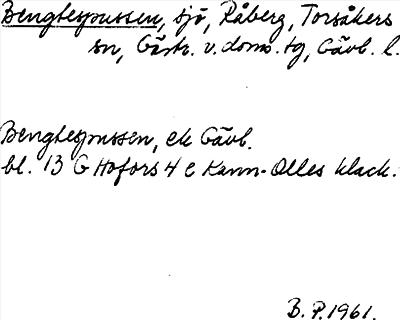 Bengtespussen, sjö, Råberg, Torsåkers
sn, Gästr. v. doms. tg, Gävb. l.
Bengtespussen, ek Gävb.
bl. 13 G Hofors 4 c Kann-Olles klack.
B. P. 1961.